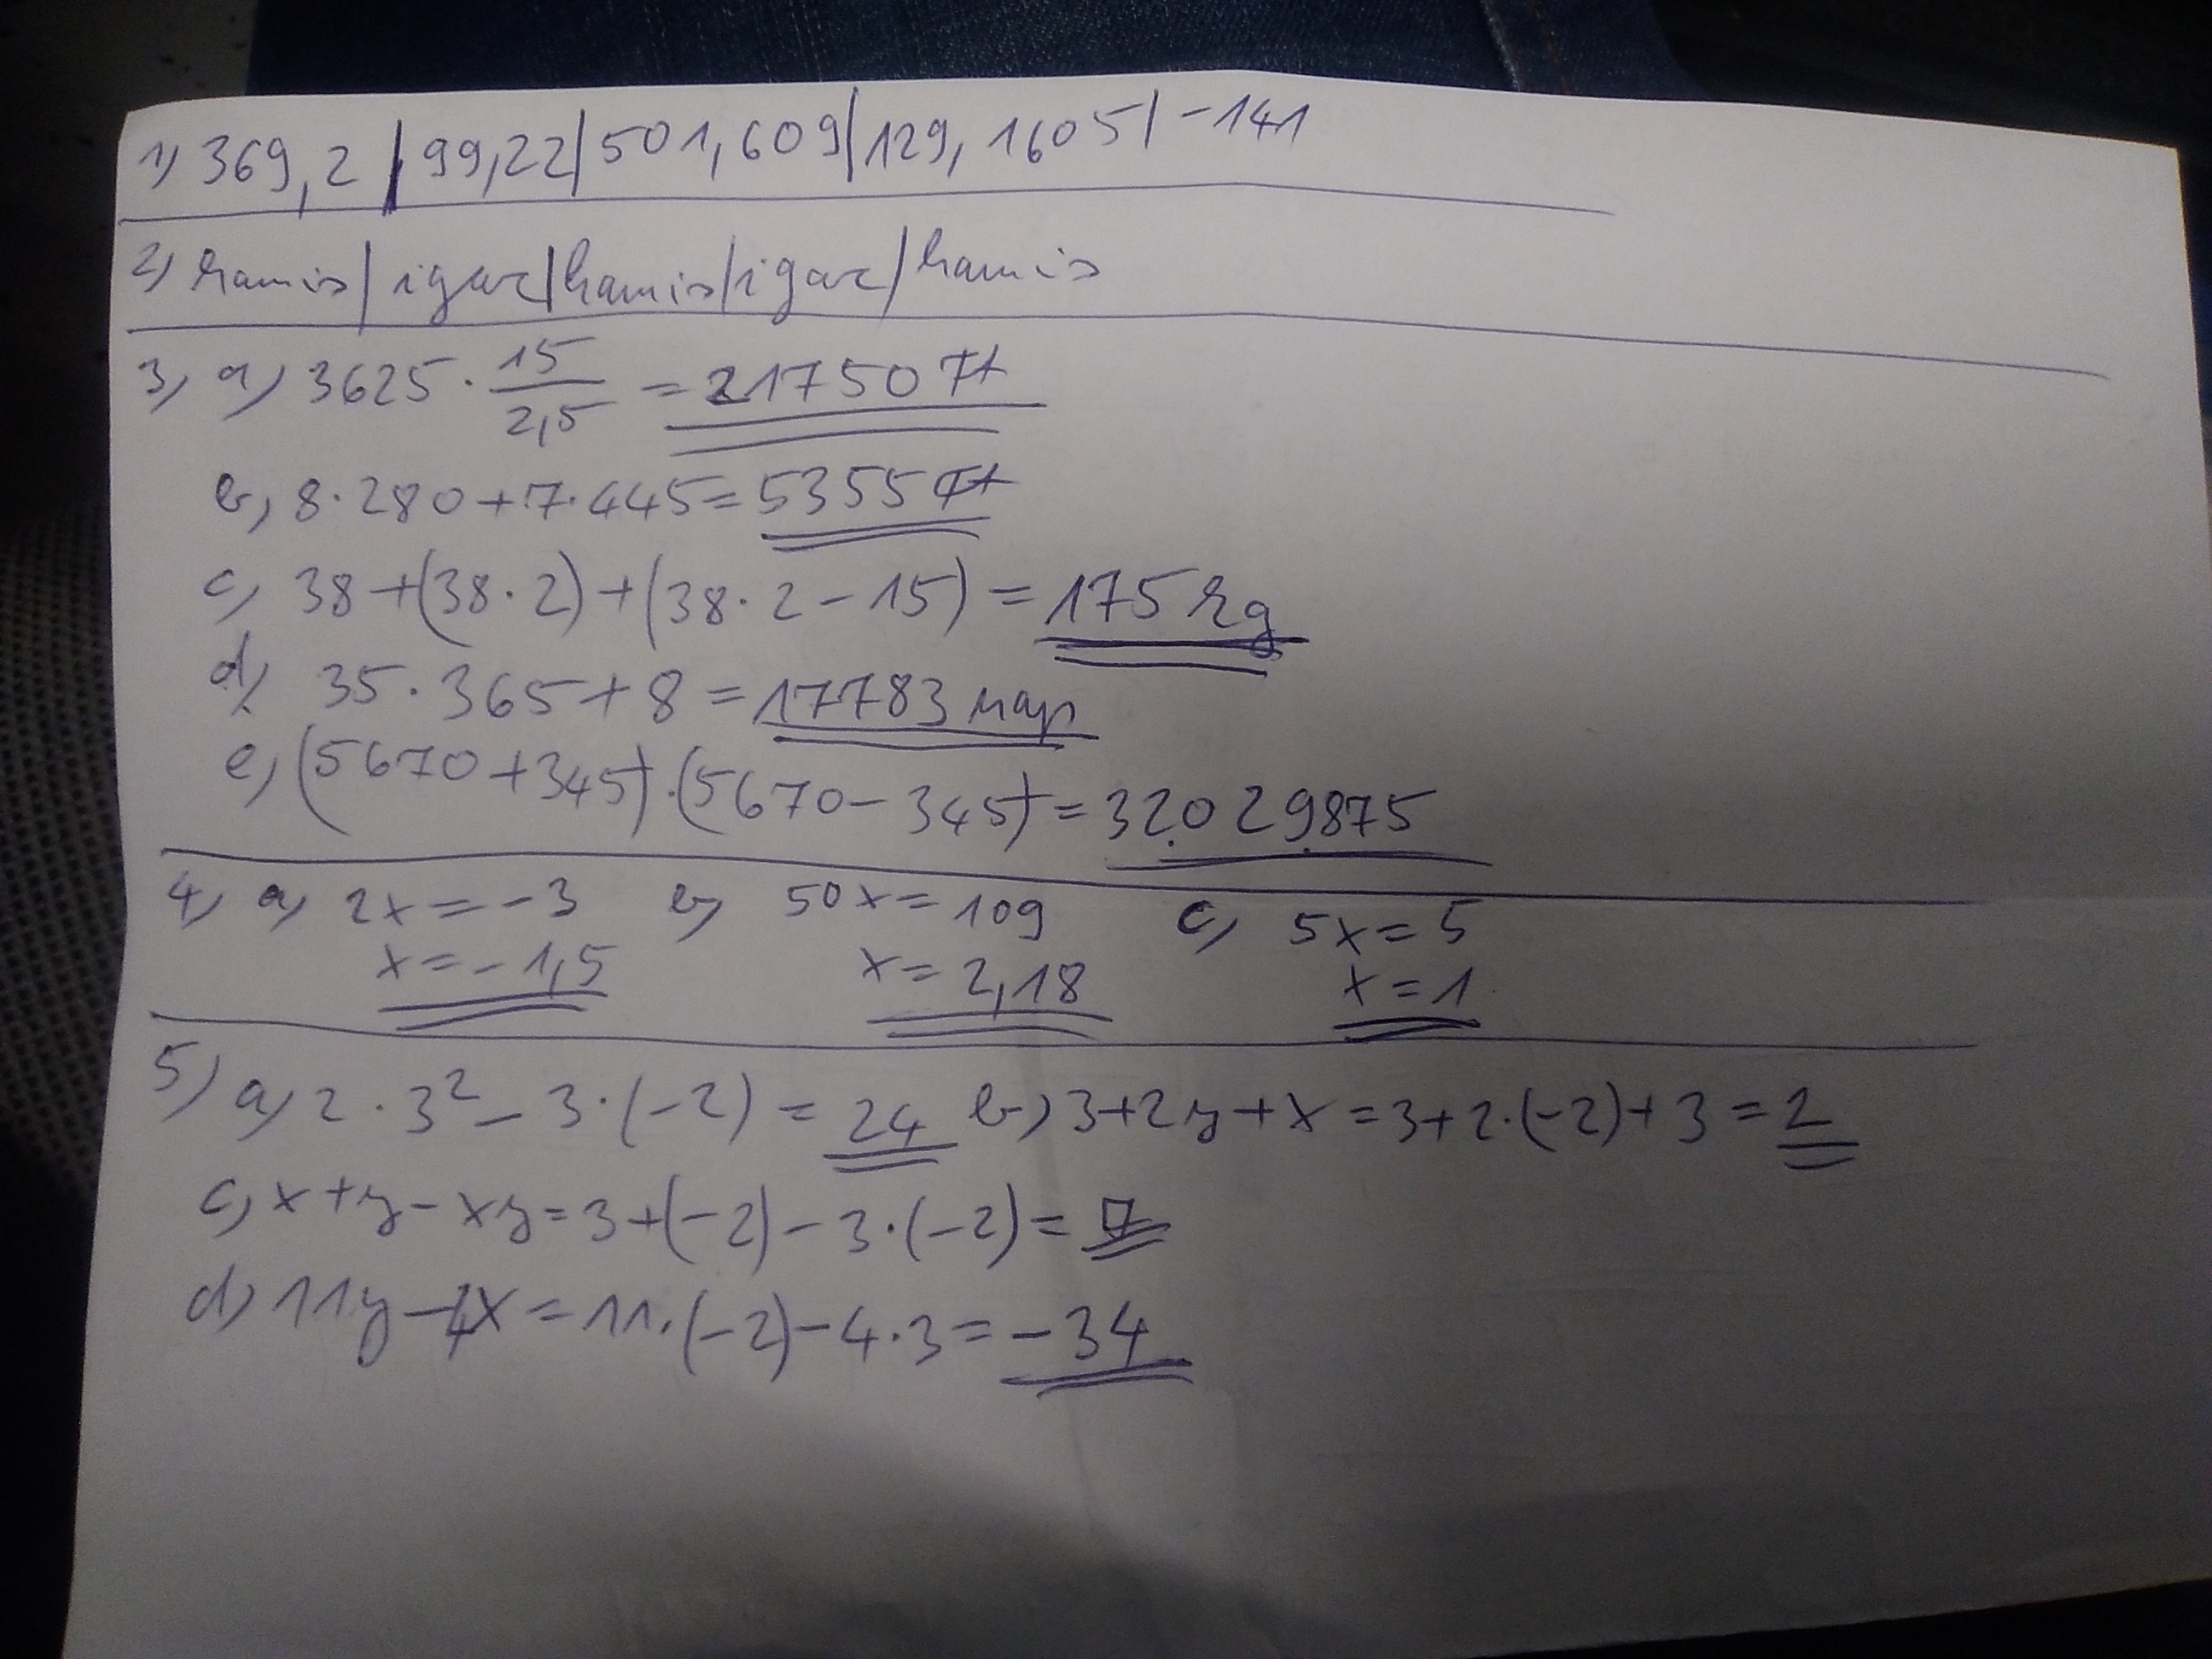 1) 369,2 | 99,22 | 501,609 | 129,1605 | -141
2) hamis | igaz | hamis | igaz | hamis
3) a) 3625 · 15/2,5 = 21750 Ft
b) 8·280+7·445=5355 Ft
c) 38+(38·2)+(38·2-15)=175 kg
d) 35·365+8=17783 nap
e) (5670+345)·(5670-345)=32.029.875
4) a) 2x=-3 b) 50x=109 c) 5x=5
x=-1,5 x=2,18 x=1
5) a) 2·3²-3·(-2)=24 b) 3+2y+x=3+2·(-2)+3=2
c) x+y-xy=3+(-2)-3·(-2)=7
d) 11y-4x=11·(-2)-4·3=-34